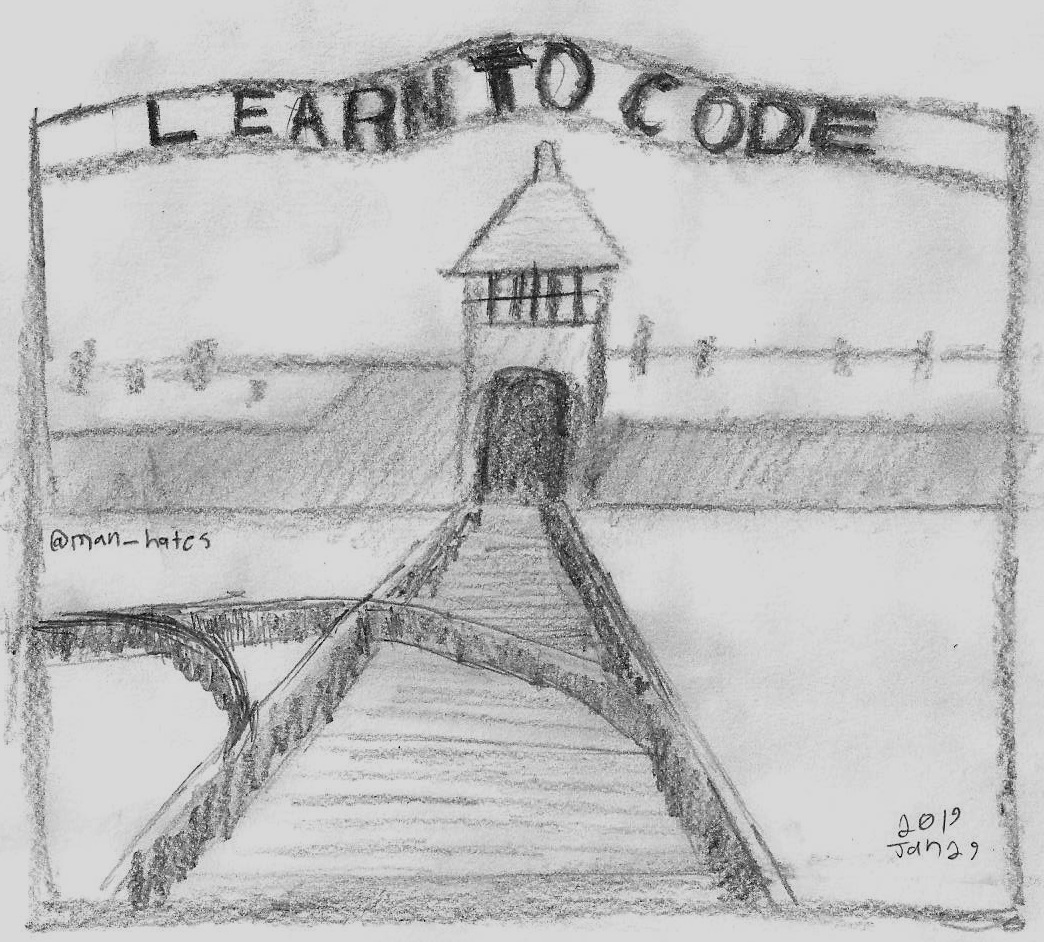 LEARN TO CODE
@man_hates
2019
Jan 29